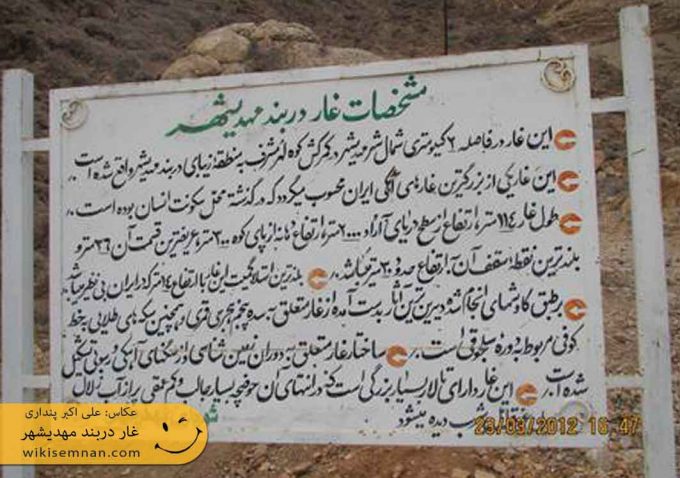 مشخصات غار دربند مهدیشهر
این غار در فاصله ۲ کیلومتری شمال شهر مهدیشهر در کمرکش کوه المر مشرف به منطقه زیبای دربند مهدیشهر واقع شده است.
این غار یکی از بزرگترین غارهای آهکی ایران محسوب میگردد که در گذشته محل سکونت انسان بوده است.
طول غار ۱۱۴ متر، ارتفاع از سطح دریای آزاد ۲۰۰۰ متر، ارتفاع دهانه از پای کوه ۲۰۰ متر، عریضترین قسمت آن ۳۶ متر و
بلندترین نقطه سقف آن به ارتفاع حدود ۲۰ متر میباشد. بلندترین استالاگمیت این غار با ارتفاع ۱۴ متر که در ایران بی نظیر میباشد
برطبق کاوشهای انجام شده دیرین ترین آثار بدست آمده از غار متعلق به سده پنجم هجری قمری و همچنین سکه های طلایی به خط
کوفی مربوط به دوره سلجوقی است. ساختار غار متعلق به دوران زمین شناسی و از سنگهای آهکی و رسوبی تشکیل
شده است. این غار دارای تالار بسیار بزرگی است که در انتهای آن حوضچه بسیار جالب و کم عمقی پر از آب زلال
شرب دیده میشود
23/03/2012 16:47
عکاس: علی اکبر پنداری
غار دربند مهدیشهر
wikisemnan.com